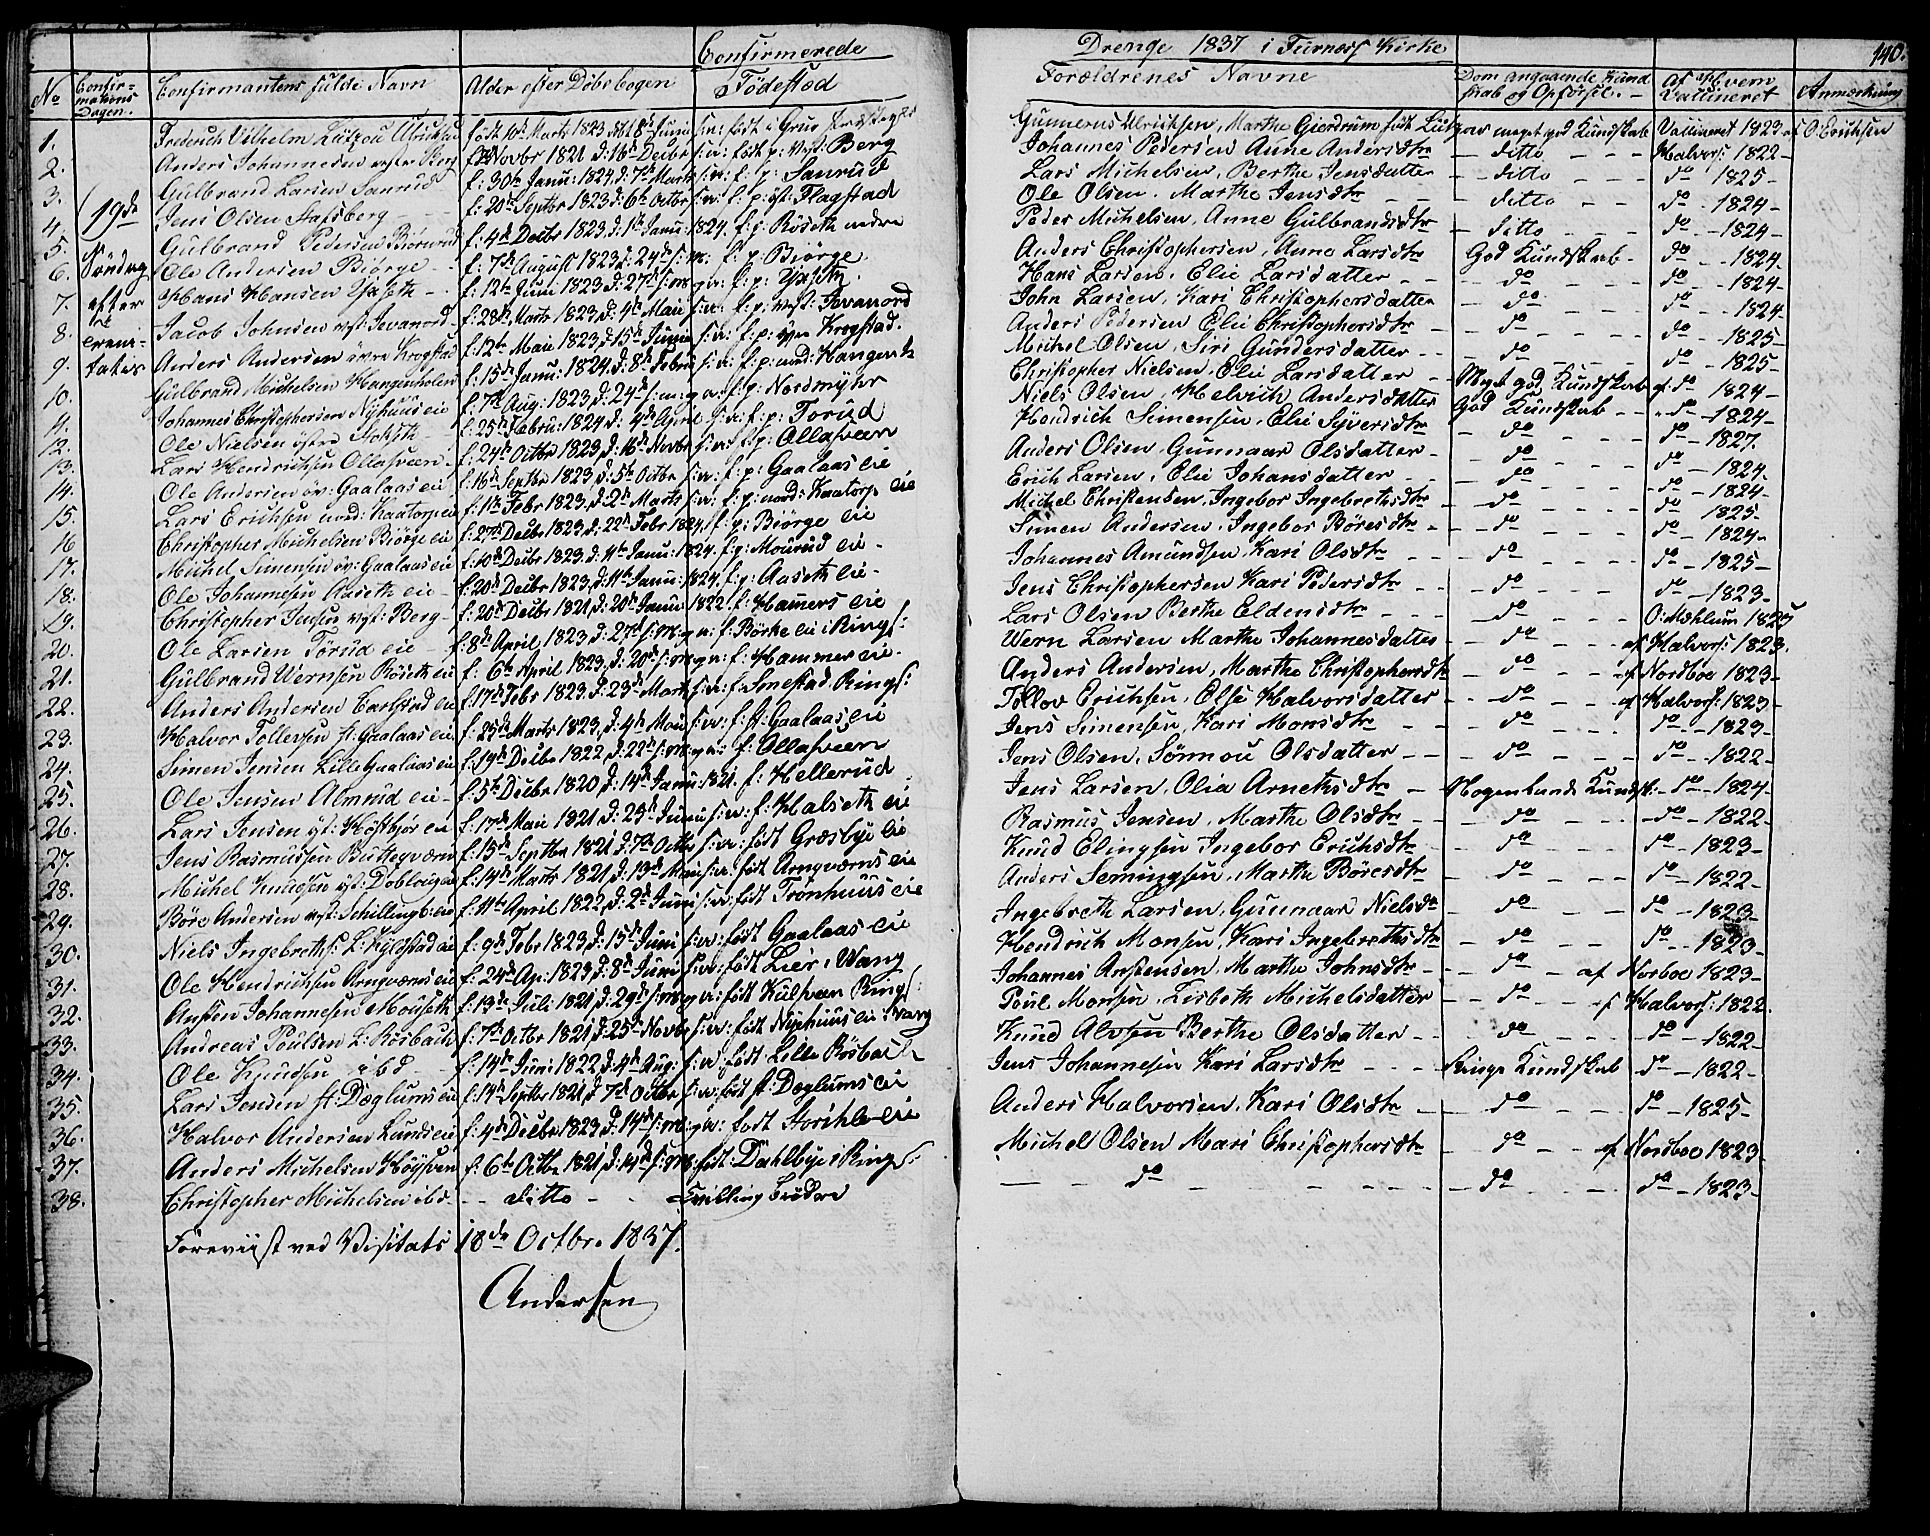 Confirmerede
No Confirmations Dagen. Confirmantens fulde Navn Alder efter Döbebogen Födestæd
19de Söndag efter Trinitatis
1. Frederich Vilhelm Lützou födt 10de Marts 1823 födt i Grue Præstegield
2. Anders Johannesen Berg Novbr 1821 d: 16de Decbr s: a: födt p: vest: Berg
3. Gulbrand Larsen Sanrud f: 30te Janu: 1824, d: 7de Marts s: a: f: p: Sanrud
4. Jens Olsen Stafsberg f: 20de Septbr 1823 d: 6te Octbr s: a: f: p: öst: Flagstad
5. Gulbrand Pedersen f: 4de Decbr 1823, d: 1ste Janu: 1824. f: p: Röseth nedre
6. Ole Andersen Biörge f: 7de August 1823 d: 24de s: m: f: p: Biörge.
7. Hans Hansen f: 12te Juni 1823 d: 27de s: m: a: f: p:
8. Jacob Johnsen vest: Jevanord f: 28de Marts 1823, d: 4de Maii s: a: f: p: vest: Jevanord
9. Anders Andersen övre Krogstad f: 12te Maii 1823, d: 15de Junii s: a: f: p: övre Krogstad.
10. Gulbrand Michelsen Hangenholen f: 15de Janu: 1824, d: 8de Febru s: a: f: p: ned:
11. Johannes Christophersen Nyhuus eie f: 7de Aug: 1823, d: 24de s: m: a: f: p: Nordmyhr
12. Ole Nielsen f: 25de Febru: 1824 d: 4de April s: a: f: p: Torud
13. Lars Hendrichsen Ollasveen f: 24de Octbr 1823, d: 16de Novbr s: a: f: p: Ollasveen
14. Ole Andersen öv: Gaalaas eie f: 16de Septbr 1823, d: 5te Octbr s: a: f: p: Gaalaas eie
15. Lars Erichsen ned: Kaatorp eie f: 11te Febr 1823, d: 2de Marts s: a: f: p: ned: Kaatorp eie
16. Christopher Michelsen Biörge eie f: 27de Decbr 1823, d: 22de Febr 1824, f: p: Biörge eie
17. Michel Simensen öv: Gaalaas eie f: 10de Decbr 1823. d: 4de Janu: 1824. f: p: Mourud eie
18. Ole Johannesen Aaseth eie f: 20de Decbr 1823, d: 11te Janu: 1824. f: p: Aaseth eie
19. Christopher Jensen vest: Berg f: 20de Decbr 1821, d: 20de Janu: 1822. f: Hamers eie
20. Ole Larsen Torud eie f: 8de April 1823, d: 27de s: m: a: f: Börke eie i Rings:
21. Gulbrand Wernsen Röseth eie f: 6te April 1823, d: 20de s: m: a: f: Hammer eie.
22. Anders Andersen Carlstad eie f: 17de Febr 1823. d: 23de Marts s: a: f: Smestad Rings:
23. Halvor Tollevsen st: Gaalaas eie f: 25de Marts 1823, d: 4de Maii s: a: f: st: Gaalaas eie
24. Simen Jensen Lille Gaalaas eie f: 19de Decbr 1822, d: 22de s: m: a: f: Ollasveen
25. Ole Jensen Almrud eie f: 5te Decbr 1820, d: 14de Janu: 1821. f: Hellerud
26. Lars Jensen öst: Höstbjör eie f: 17de Maii 1821, d: 23de Junii s: a: f: Halseth eie
27. Jens Rasmussen f: 15de Septbr 1821 d: 7de Octbr s: a: födt Græsbye eie
28. Michel Knudsen öst: Dobloug eie f: 14de Marts 1821, d: 13de Maii s: a: födt Arngværns eie
29. Böre Andersen vest: Schilling: eie f: 11te April 1822, d: 2de Junii s: a: födt Trönhuus eie
30. Niels Ingebreths: L: Kylstad eie f: 9de Febr 1823, d: 15de Juni s: a: födt Gaalaas eie
31. Ole Hendrichsen Arngværns eie f: 24de Ap: 1823, d: 8de Juni s: a: födt Lier i Wang
32. Ansten Johannesen Mouseth f: 13de Juli 1821, d: 29de s: m: a: födt Kulsveen Rings:
33. Andreas Poulsen L: Rosbach f: 7de Octbr 1821, d: 25de Novbr s: a: födt Nyehuus eie: Wang
34. Ole Knudsen ibd f: 14de Juni 1822, d: 4de Aug: s: a: födt Lille Rösbach
35. Lars Jensen st: Dæglums eie f: 14de Septbr 1821, d: 7de Octbr s: a: födt st: Dæglums eie
36. Halvor Andersen Lunds eie f: 4de Decbr 1823, d: 14de s: m: a: födt Storihle eie
37. Anders Michelsen Höysveen f: 6te Octbr 1821, d: 14de s: m: födt: Dahlbye i Rings:
38. Christopher Michelsen ibd. - - ditto - - = Tvilling brödre
Foreviist ved Visitats 18de Octbr. 1837.
Andersen
Drenge 1837 i Furness Kirke 140.
Forældrenes Navne Dom angaaende Kundskab og Opförsel. Af Hvem Vaccineret Anmærkning
Gunnerus Ulrichsen, Marthe Gjerdrum født Lützow meget god Kundskab Vaccineret 1823 af O: Erichsen
Johannes Pedersen Anne Andersdtr - ditto - Halvors: 1822-
Lars Michelsen, Berthe Jensdatter - ditto - do 1825-
Ole Olsen. Marthe Jensdtr - ditto - do 1824-
Peder Michelsen, Anne Gulbrandsdtr - ditto - do 1824-
Anders Christophersen, Anne Larsdtr God Kundskab - do 1824-
Hans Larsen, Elie Larsdatter - do - do 1824-
John Larsen, Kari Christophersdatter - do - do 1824-
Anders Pedersen Elie Christophersdtr - do - do 1825-
Michel Olsen, Siri Gundersdatter - do - do 1825-
Christopher Nielsen, Elie Larsdatter Meget god Kundskab af do 1824-
Niels Olsen, Helvich Andersdatter God Kundskab - do 1824-
Hendrich Simensen, Elie Syversdtr - do - do 1827.
Anders Olsen, Gunnaar Olsdatter - do - do 1824-
Erich Larsen, Elie Johansdatter - do - do 1824-
Michel Christensen, Ingebor Ingebrethsdtr - do - do 1825-
Simen Andersen, Ingebor Böresdtr - do - do 1824-
Johannes Amundsen, Kari Olsdtr - do - do 1825-
Jens Christophersen Kari Pedersdtr - do - do 1823-
Lars Olsen Berthe Eldensdtr - do - O: Mæhlum 1825
Wern Larsen Marthe Johannesdatter - do - af Halvors: 1823.
Anders Andersen, Marthe Christophersdtr - do - af Nordboe 1823-
Tollov Erichsen, Else Halvorsdatter - do - af Halvors: 1823-
Jens Simensen, Kari Monsdtr - do - do 1823-
Jens Olsen, Sönnou Olsdatter - do - do 1822-
Jens Larsen, Olia Arnethsdtr - Nogenlunde Kundsk: - do 1824-
Rasmus Jensen, Marthe Olsdtr - do - do 1822-
Knud Elingsen Ingebor Erichsdtr - do - do 1823-
Anders Semingsen, Marthe Böresdtr - do - do 1822-
Ingebreth Larsen, Gunnaar Nielsdtr - do - do 1823-
Hendrich Monsen, Kari Ingebrethsdtr - do - do 1823-
Johannes Anstensen, Marthe Johnsdtr - do - af Norboe 1823-
Poul Monsen, Lisbeth Michelsdatter - do - af Halvors: 1822.
Knud Alvsen Berthe Olsdatter - do - do 1822-
Jens Johannesen Kari Larsdtr - Ringe Kundskab do 1822-
Anders Halvorsen, Kari Olsdtr - do - do 1825-
Michel Olsen Mari Christophersdtr - do - af Norboe 1823-
- do - - do - do 1823-